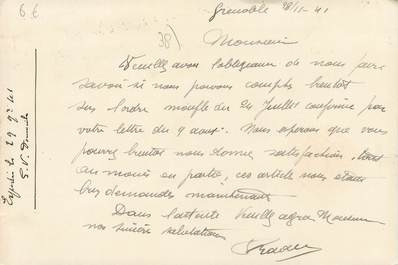 6€
38)
Grenoble 28/11-41
Monsieur
Veuillez avoir l'obligeance de nous faire
savoir si nous pouvons compter bientot
sur l'ordre moufle du 24 Juillet confirmé par
votre lettre du 9 aout. Nous esperons que vous
pourrez bientot nous donner satisfaction, tout
au moins en partie, ces article nous étant
tres demandes maintenant
Dans l'attente Veuillez agreer Monsieur
nos sincère salutations
Expédié le 29 9bre 41